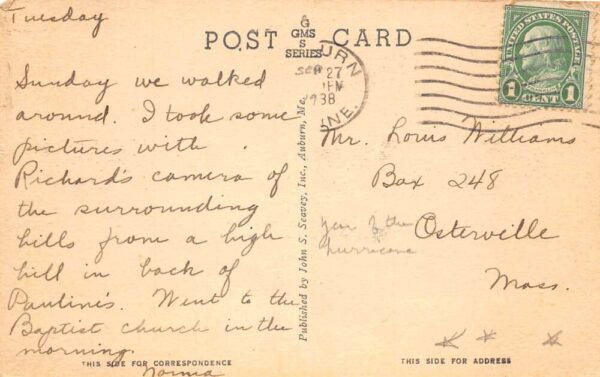 Tuesday
Sunday we walked
around. I took some
pictures with
Richard's camera of
the surrounding
hills from a high
hill in back of
Pauline's. Went to the
Baptist church in the
morning.
Norma
THIS SIDE FOR CORRESPONDENCE
POST CARD
G
GMS
S
SERIES
Published by John S. Seavey, Inc., Auburn, Me.
URN
SEP 27
PM
1938
ME.
UNITED STATES POSTAGE
FRANKLIN
1 CENT 1
Mr. Louis Williams
Box 248
Osterville
Mass.
year of the
hurricane
THIS SIDE FOR ADDRESS